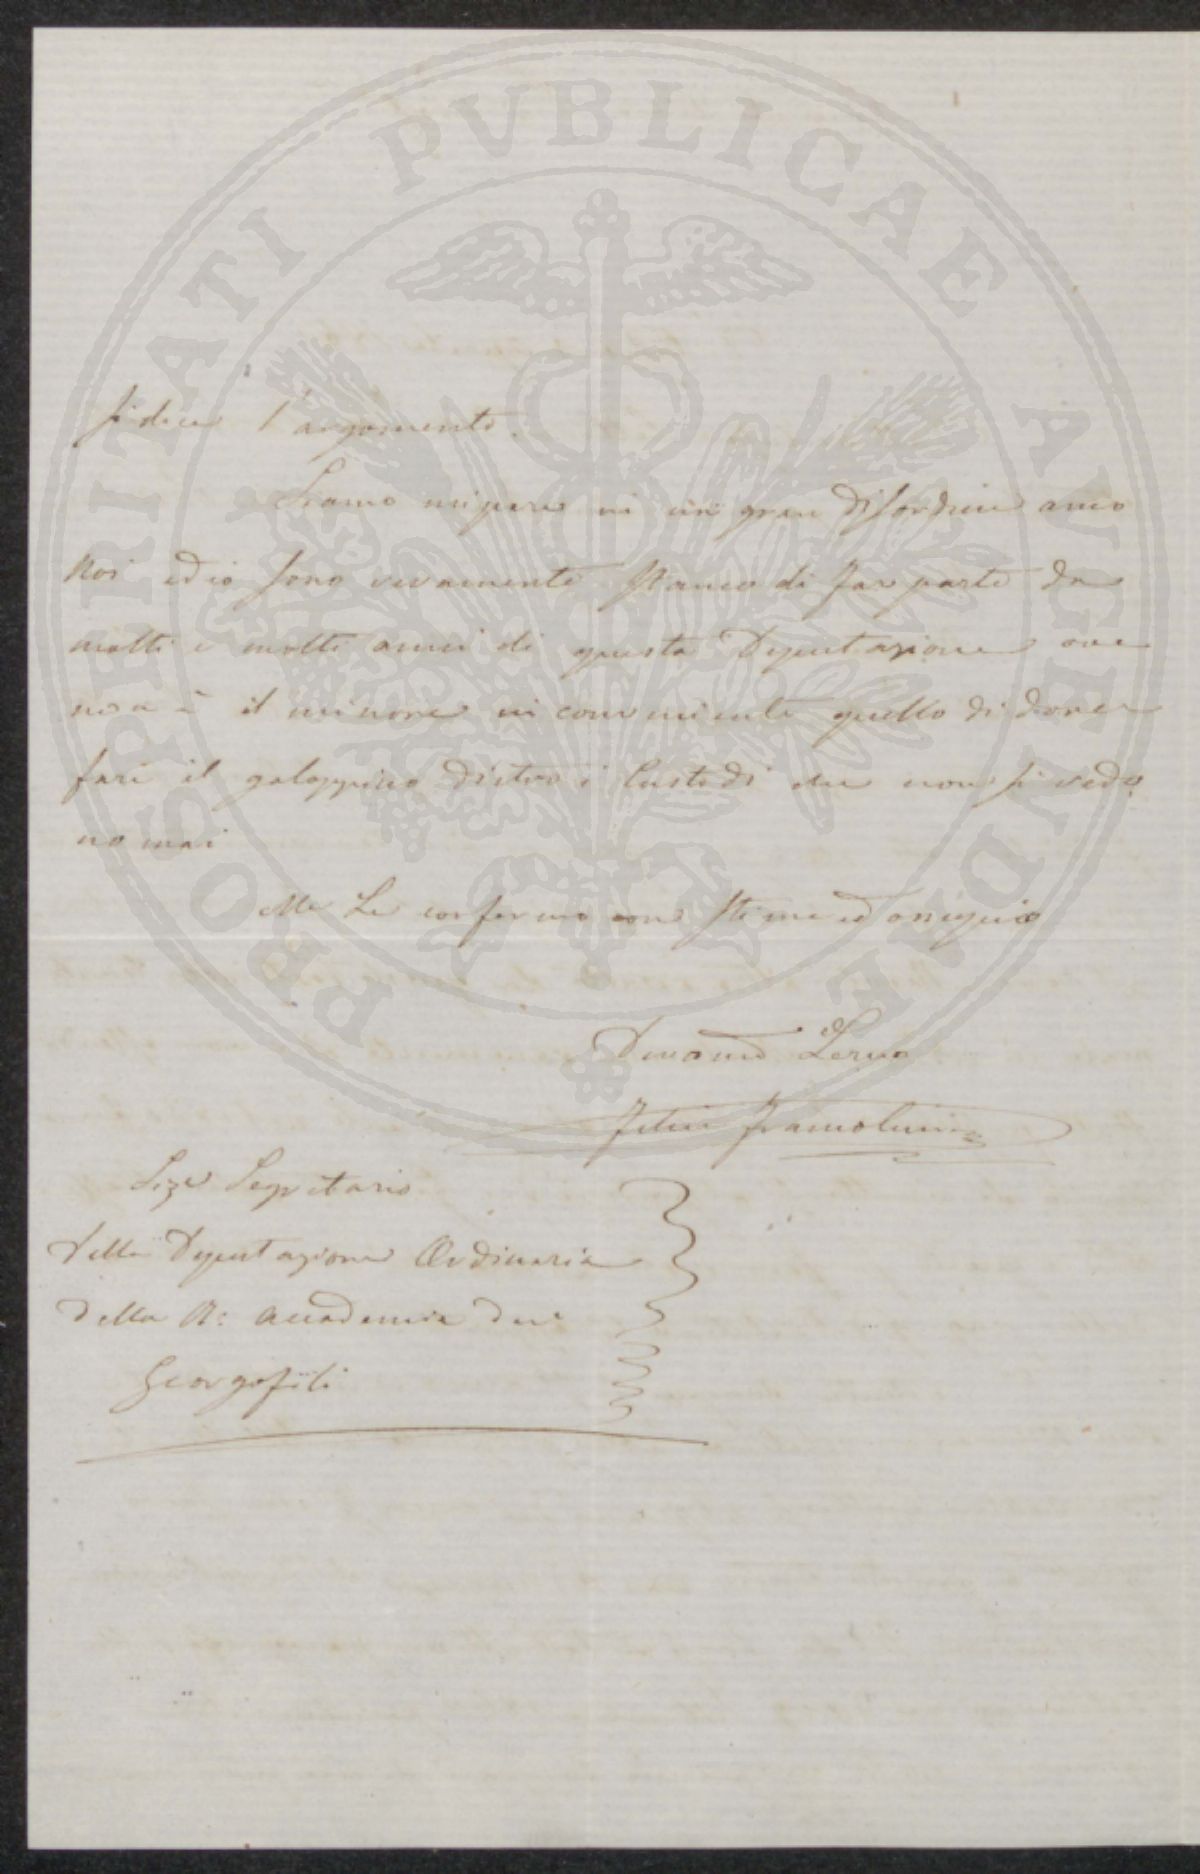 PROSPERITATI PVBLICAE AVGENDAE
si dice l'argomento.
Siamo mi pare in un gran disordine anco
Noi ed io sono veramente stanco di far parte da
molti e molti anni di questa Deputazione ove
non è il minore inconveniente quello di dover
fare il galoppino dietro i Custodi che non si vedo
no mai
Me Le confermo con stima ed ossequio
Devotmo Servo
Felice Francolini
Sige Segretario
della Deputazione Ordinaria
della R: Accademia dei
Georgofili